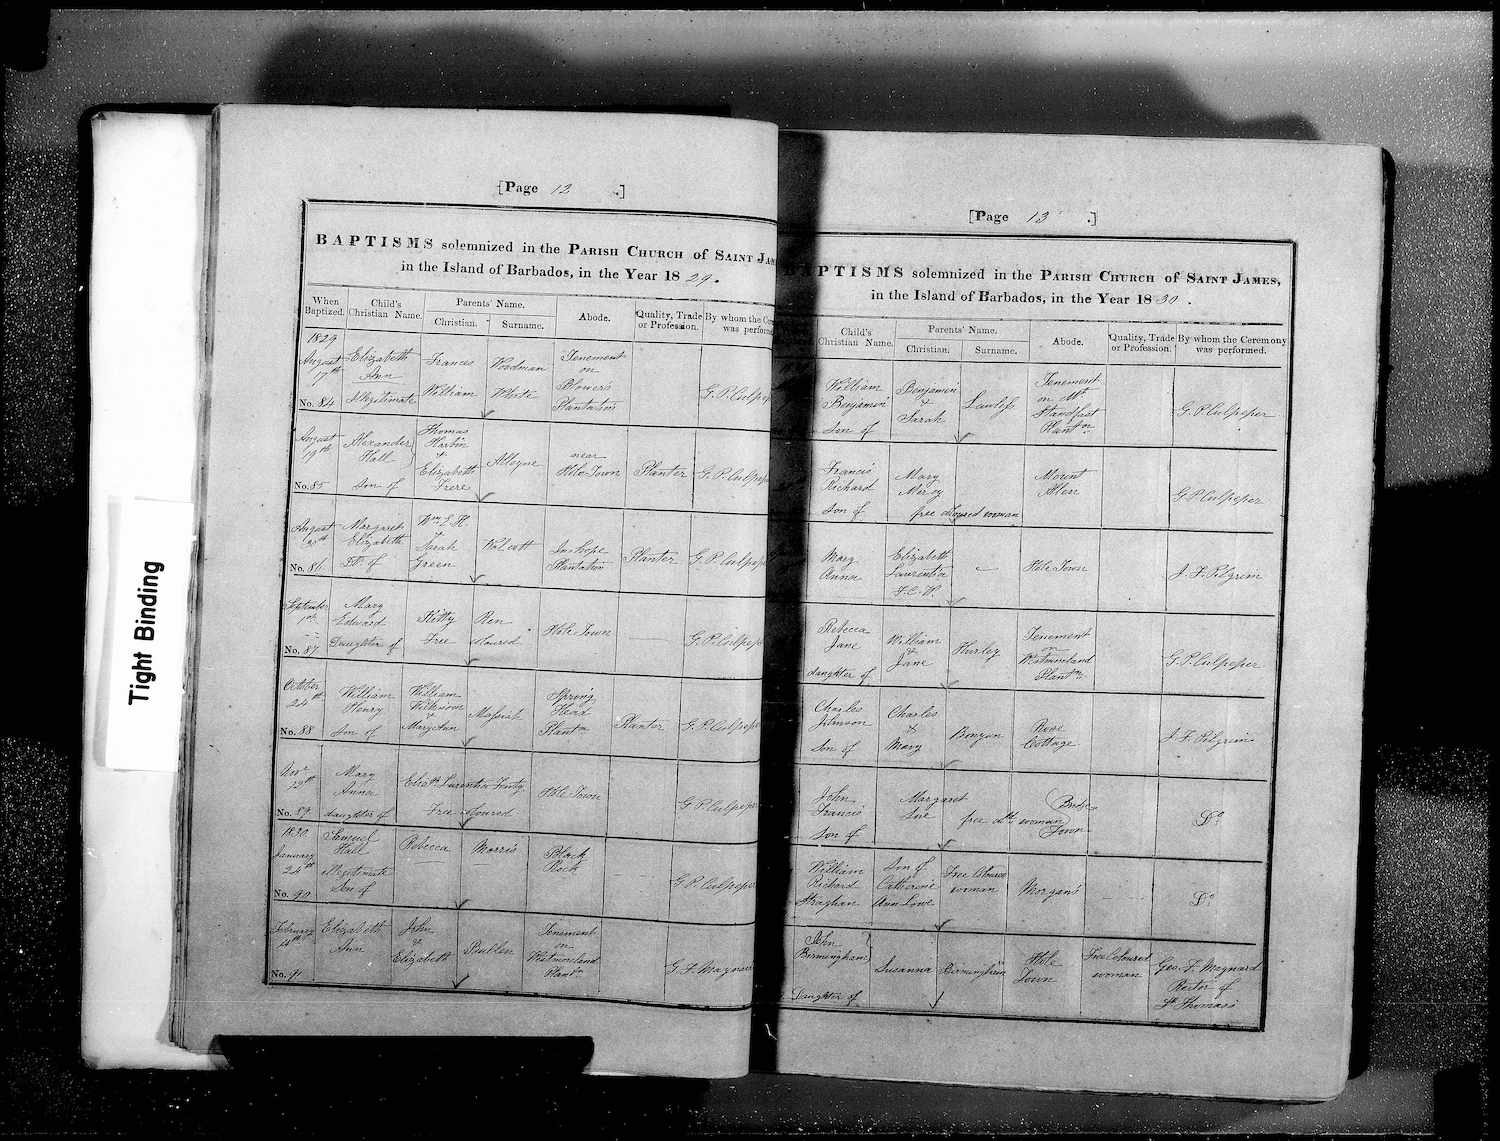 Tight Binding
[Page 12 .]
BAPTISMS solemnized in the PARISH CHURCH of SAINT JAM
in the Island of Barbados, in the Year 1829.
When Baptized.
Child's Christian Name.
Parents' Name.
Christian.
Surname.
Abode.
Quality, Trade or Profession.
By whom the Cere was perform
1829
August 17th
No. 84
Elizabeth Ann
Illegitimate
Frances
William
Woodman
White
Tenement on Blowers Plantation
G. P. Culpep
August 19th
No. 85
Alexander Hall
Son of
Thomas Harbin & Elizabeth Frere
Alleyne
near Hole Town
Planter
G. P. Culpep
August
No. 86
Margaret Elizabeth
Dr. of
Wm. & Sarah Green
Walcott
Plantation
Planter
G. P. Culpep
September 1st
No. 87
Mary Edward
Daughter of
Kitty
Free
Ren
coloured
Hole Town
G. P. Culpep
October 24th
No. 88
William Henry
Son of
William Wilkinson & Mary Ann
Massiah
Spring Head Plantn
Planter
G. P. Culpep
Novr
No. 89
Mary Anna
daughter of
Elizth Laurentia
Free Coloured
Hole Town
G. P. Culpep
1830
January 24th
No. 90
Samuel Hall
Illegitimate Son of
Rebecca
Morris
Black Rock
G. P. Culpeper
February
No. 91
Elizabeth Ann
John & Elizabeth
Tenement on Westmoreland Plantn
G. F. Maynar
[Page 13 .]
BAPTISMS solemnized in the PARISH CHURCH of SAINT JAMES,
in the Island of Barbados, in the Year 1830.
Child's Christian Name.
Parents' Name.
Christian.
Surname.
Abode.
Quality, Trade or Profession.
By whom the Ceremony was performed.
William Benjamin
Son of
Benjamin & Sarah
Lawless
Tenement on Mt Standfast Plantn
G. P. Culpeper
Francis Richard
Son of
Mary Mercy
free coloured woman
Mount Allen
G. P. Culpeper
Mary Anna
Elizabeth Laurentia
F. C. W.
—
Hole Town
J. F. Pilgrim
Rebecca Jane
daughter of
William & Jane
Hurley
Tenement on Westmoreland Plantn
G. P. Culpeper
Charles Johnson
Son of
Charles & Mary
Bonyun
Rose Cottage
J. F. Pilgrim
John Francis
Son of
Margaret Sue
free cold woman
Bridge Town
Do
William Richard Straghan
Son of Catherine Ann Lowe
Free Coloured woman
Morgan's
Do
John Birmingham
Daughter of
Susanna
Birmingham
Hole Town
Free Coloured woman
Geo. F. Maynard
Rector of
St. Thomas's